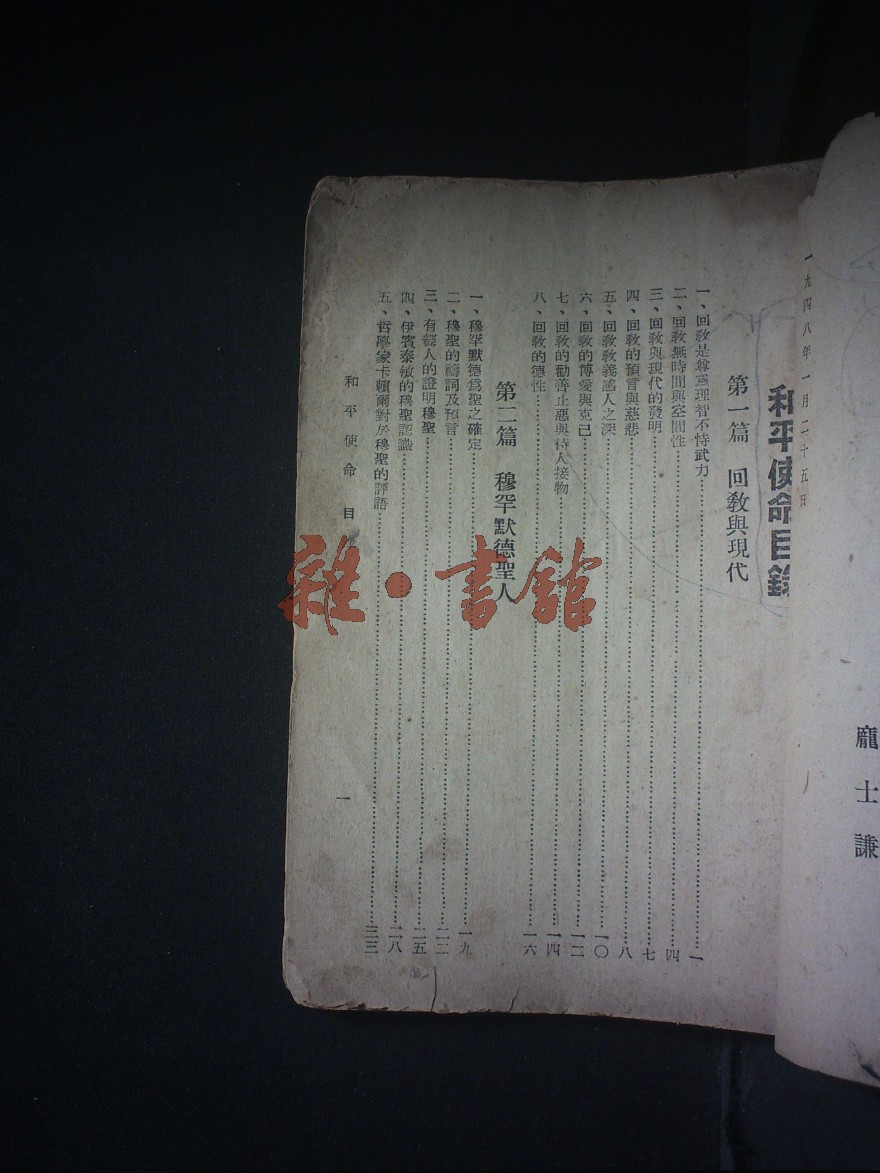 一九四八年一月二十五日
龐士謙
和平使命目錄
第一篇 回教與現代
一、回教是尊重理智不恃武力……一
二、回教無時間與空間性……四
三、回教與現代的發明……七
四、回教的預言與慈悲……八
五、回教教義感人之深……一〇
六、回教的博愛與克己……一二
七、回教的勸善止惡與待人接物……一四
八、回教的德性……一六
第二篇 穆罕默德聖人
一、穆罕默德爲聖之確定……一九
二、穆聖的禱詞及預言……二二
三、有經人的證明穆聖……二五
四、伊賓泰敏的穆聖認識……二八
五、哲學家卡賴爾對於穆聖的評語……三三
和平使命 目
一
雜·書館